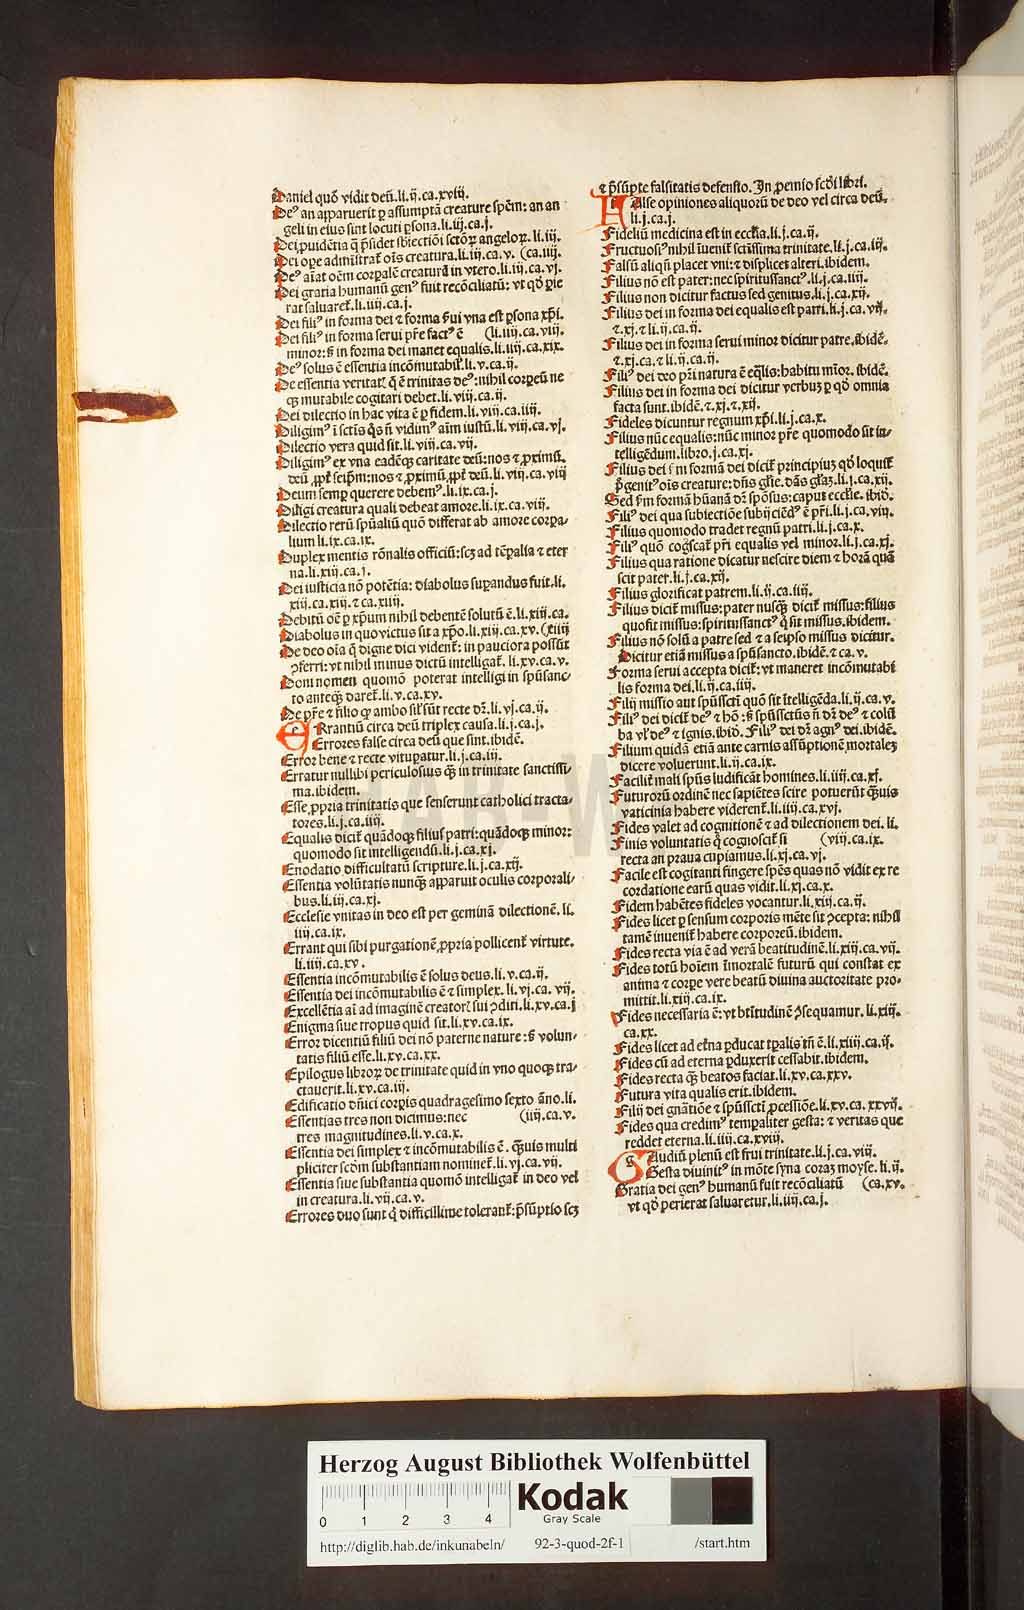 Daniel quō vidit deū.li.ij.ca.xviij.
Deꝰ an apparuerit ꝑ assumptā creature spēm: an an
geli in eius sint locuti ꝑsona.li.iij.ca.j.
Dei ꝓuidētia q̄ p̄sidet sbiectiōi sctōꝝ angeloꝝ.li.iij.
Dei ope admīstrat᷑ oīs creatura.li.iij.ca.v. (ca.iiij.
Deꝰ aīat oēm corpalē creaturā in vtero.li.iij.ca.vj.
Dei gratia humanū genꝰ fuit recōciliatū: vt qd̓ ꝑie
rat saluaret᷑.li.iiij.ca.j.
Dei filiꝰ in forma dei ⁊ forma s̓ui vna est ꝑsona xp̄i.
Dei filiꝰ in forma serui pr̄e factꝰ ē (li.iiij.ca.viij.
minor: s̄ in forma dei manet equalis.li.iiij.ca.xix.
Deꝰ solus ē essentia incōmutabil᷑.li.v.ca.ij.
De essentia veritat᷑ q̄ ē trinitas deꝰ: nihil corpeū ne
qꝫ mutabile cogitari debet.li.viij.ca.ij.
Dei dilectio in hac vita ē ꝑ fidem.li.viij.ca.iiij.
Diligimꝰ ī sctīs q̄s n̄ vidimꝰ aīm iustū.li.viij.ca.vj.
Dilectio vera quid sit.li.viij.ca.vij.
Diligimꝰ ex vna eadēqꝫ caritate deū: nos ⁊ ꝓximū.
deū ꝓpt᷑ seip̄m: nos ⁊ ꝓximū ꝓpt᷑ deū.li.viij.ca.viij
Deum semꝑ querere debemꝰ.li.ix.ca.j.
Diligi creatura quali debeat amore.li.ix.ca.viij.
Dilectio rerū spūaliū quō differat ab amore corpa-
lium li.ix.ca.ix.
Duplex mentis rōnalis officiū: scꝫ ad tēpalia ⁊ eter
na.li.xij.ca.j.
Dei iusticia nō potētia: diabolus supandus fuit.li.
xiij.ca.xiij.⁊ ca.xiiij.
Debitū oē ꝑ xp̄um nihil debentē solutū ē.li.xiij.ca.
Diabolus in quo victus sit a xp̄o.li.xiij.ca.xv.(xiiij
De deo oīa q̄ digne dici vident᷑: in pauciora possūt
ꝯferri: vt nihil minus dictū intelligat᷑.li.xv.ca.v.
Doni nomen quomō poterat intelligi in spūsanc-
to anteqꝫ daret᷑.li.v.ca.xv.
De pr̄e ⁊ filio q̄ ambo sil᷑ sūt recte dr̄.li.vj.ca.ij.
ERrantiū circa deū triplex causa.li.j.ca.j.
Errores false circa deū que sint.ibidē.
Error bene ⁊ recte vitupatur.li.j.ca.iij.
Erratur nullibi periculosius qꝫ in trinitate sanctissi-
ma.ibidem.
Esse ꝓpria trinitatis que senserunt catholici tracta-
tores.li.j.ca.iiij.
Equalis dicit᷑ quādoqꝫ filius patri: quādoqꝫ minor:
quomodo sit intelligendū.li.j.ca.xj.
Enodatio difficultatū scripture.li.j.ca.xij.
Essentia volūtatis nunqꝫ apparuit oculis corporali-
bus.li.iij.ca.xj.
Ecclesie vnitas in deo est per geminā dilectionē.li.
iiij.ca.ix.
Errant qui sibi purgationē ꝓpria pollicent᷑ virtute.
li.iiij.ca.xv.
Essentia incōmutabilis ē solus deus.li.v.ca.ij.
Essentia dei incōmutabilis ē ⁊ simplex.li.vj.ca.vij.
Excellētia aī ad imaginē creator᷑ sui ꝯditi.li.xv.ca.j
Enigma siue tropus quid sit.li.xv.ca.ix.
Error dicentiū filiū dei nō paterne nature: s̄ volun-
tatis filiū esse.li.xv.ca.xx.
Epilogus libroꝝ de trinitate quid in vno quoqꝫ tra-
ctauerit.li.xv.ca.iij.
Edificatio dn̄ici corpis quadragesimo sexto āno.li.
Essentias tres non dicimus: nec (iiij.ca.v.
tres magnitudines.li.v.ca.x.
Essentia dei simplex ⁊ incōmutabilis ē. qꝫuis multi
pliciter scd̄m substantiam nominet᷑.li.vj.ca.vij.
Essentia siue substantia quomō intelligat᷑ in deo vel
in creatura.li.vij.ca.v.
Errores duo sunt q̄ difficillime tolerant᷑: p̄sūptio scꝫ
⁊ p̄sūpte falsitatis defensio. In ꝓemio scd̓i libri.
FAlse opiniones aliquorū de deo vel circa deū.
li.j.ca.j.
Fideliū medicina est in eccl̄ia.li.j.ca.ij.
Fructuosiꝰ nihil īuenit᷑ sctīssima trinitate.li.j.ca.iij.
Falsū aliqn̄ placet vni: ⁊ displicet alteri.ibidem.
Filius nō est pater: nec spiritussanctꝰ.li.j.ca.iiij.
Filius non dicitur factus sed genitus.li.j.ca.xij.
Filius dei in forma dei equalis est patri.li.j.ca.vij.
⁊.xj.⁊ li.ij.ca.ij.
Filius dei in forma serui minor dicitur patre.ibidē.
⁊.xj.ca.⁊ li.ij.ca.ij.
Filiꝰ dei deo pr̄i natura ē eq̄lis: habitu mīor.ibidē.
Filius dei in forma dei dicitur verbuꝫ ꝑ qd̓ omnia
facta sunt.ibidē.⁊.xj.⁊.xij.
Fideles dicuntur regnum xp̄i.li.j.ca.x.
Filius nūc equalis: nūc minor pr̄e quomodo sit in-
telligēdum.libro.j.ca.xj.
Filius dei s̄m formā dei dicit᷑ principiuꝫ qd̓ loquit᷑
p̄genitꝰ oīs creature: dn̄s gl̄ie. dās gl̄iaꝫ.li.j.ca.xij.
Sed s̄m formā hūanā dr̄ spōsus: caput eccl̄ie.ibid̓.
Filiꝰ dei qua subiectiōe subijciēdꝰ ē pr̄i.li.j.ca.viij.
Filius quomodo tradet regnū patri.li.j.ca.x.
Filiꝰ quō cog̓scat᷑ pr̄i equalis vel minor.li.j.ca.xj.
Filius qua ratione dicatur nescire diem ⁊ horā quā
scit pater.li.j.ca.xij.
Filius glorificat patrem.li.ij.ca.iiij.
Filius dicit᷑ missus: pater nusqꝫ dicit᷑ missus: filius
quo sit missus: spiritussanctꝰ q̄ sit missus.ibidem.
Filius nō solū a patre sed ⁊ a seipso missus dicitur.
Dicitur etiā missus a spūsancto.ibidē.⁊ ca.v.
Forma serui accepta dicit᷑: vt maneret incōmutabi
lis forma dei.li.ij.ca.iiij.
Filij missio aut spūsscti quō sit ītelligēda.li.ij.ca.v.
Filiꝰ dei dicit᷑ deꝰ ⁊ hō: s̄ spūssctūs n̄ dr̄ deꝰ ⁊ colū
ba vl᷑ deꝰ ⁊ ignis.ibid̓. Filiꝰ dei dr̄ agnꝰ dei.ibidē.
Filium quidā etiā ante carnis assūptionē mortaleꝫ
dicere voluerunt.li.ij.ca.ix.
Faciliꝰ mali spūs ludificāt homines.li.iiij.ca.xj.
Futurorū ordinē nec sapiētes scire potuerūt qꝫuis
vaticinia habere viderent᷑.li.iiij.ca.xvj.
Fides valet ad cognitionē ⁊ ad dilectionem dei.li.
Finis voluntatis q̄ cognoscit᷑ si (viij.ca.ix.
recta an praua cupiamus.li.xj.ca.vj.
Facile est cogitanti fingere spēs quas nō vidit ex re
cordatione earū quas vidit.li.xj.ca.x.
Fidem habētes fideles vocantur.li.xiij.ca.ij.
Fides licet ꝑ sensum corporis mēte sit ꝯcepta: nihil
tamē inuenit᷑ habere corporeū.ibidem.
Fides recta via ē ad verā beatitudinē.li.xiij.ca.vij.
Fides totū hoīem īmortalē futurū qui constat ex
anima ⁊ corpe vere beatū diuina auctoritate pro-
mittit.li.xiij.ca.ix.
Fides necessaria ē: vt btītudinē ꝯsequamur.li.xiij.
ca.xx.
Fides licet ad et̓na ꝑducat tꝑalis tn̄ ē.li.xiiij.ca.ij.
Fides cū ad eterna ꝑduxerit cessabit.ibidem.
Fides recta qꝫ beatos faciat.li.xv.ca.xxv.
Futura vita qualis erit.ibidem.
Filij dei gnātiōe ⁊ spūsscti ꝓcessiōe.li.xv.ca.xxvij.
Fides qua credimꝰ tempaliter gesta: ⁊ veritas que
reddet eterna.li.iiij.ca.xviij.
GAudiū plenū est frui trinitate.li.j.ca.viij.
Gesta diuinitꝰ in mōte syna coraꝫ moyse.li.ij.
Gratia dei genꝰ humanū fuit recōciliatū (ca.xv.
vt qd̓ perierat saluaretur.li.iiij.ca.j.
HAB-W
Herzog August Bibliothek Wolfenbüttel
0 1 2 3 4
Kodak
Gray Scale
http://diglib.hab.de/inkunabeln/ 92-3-quod-2f-1 /start.htm